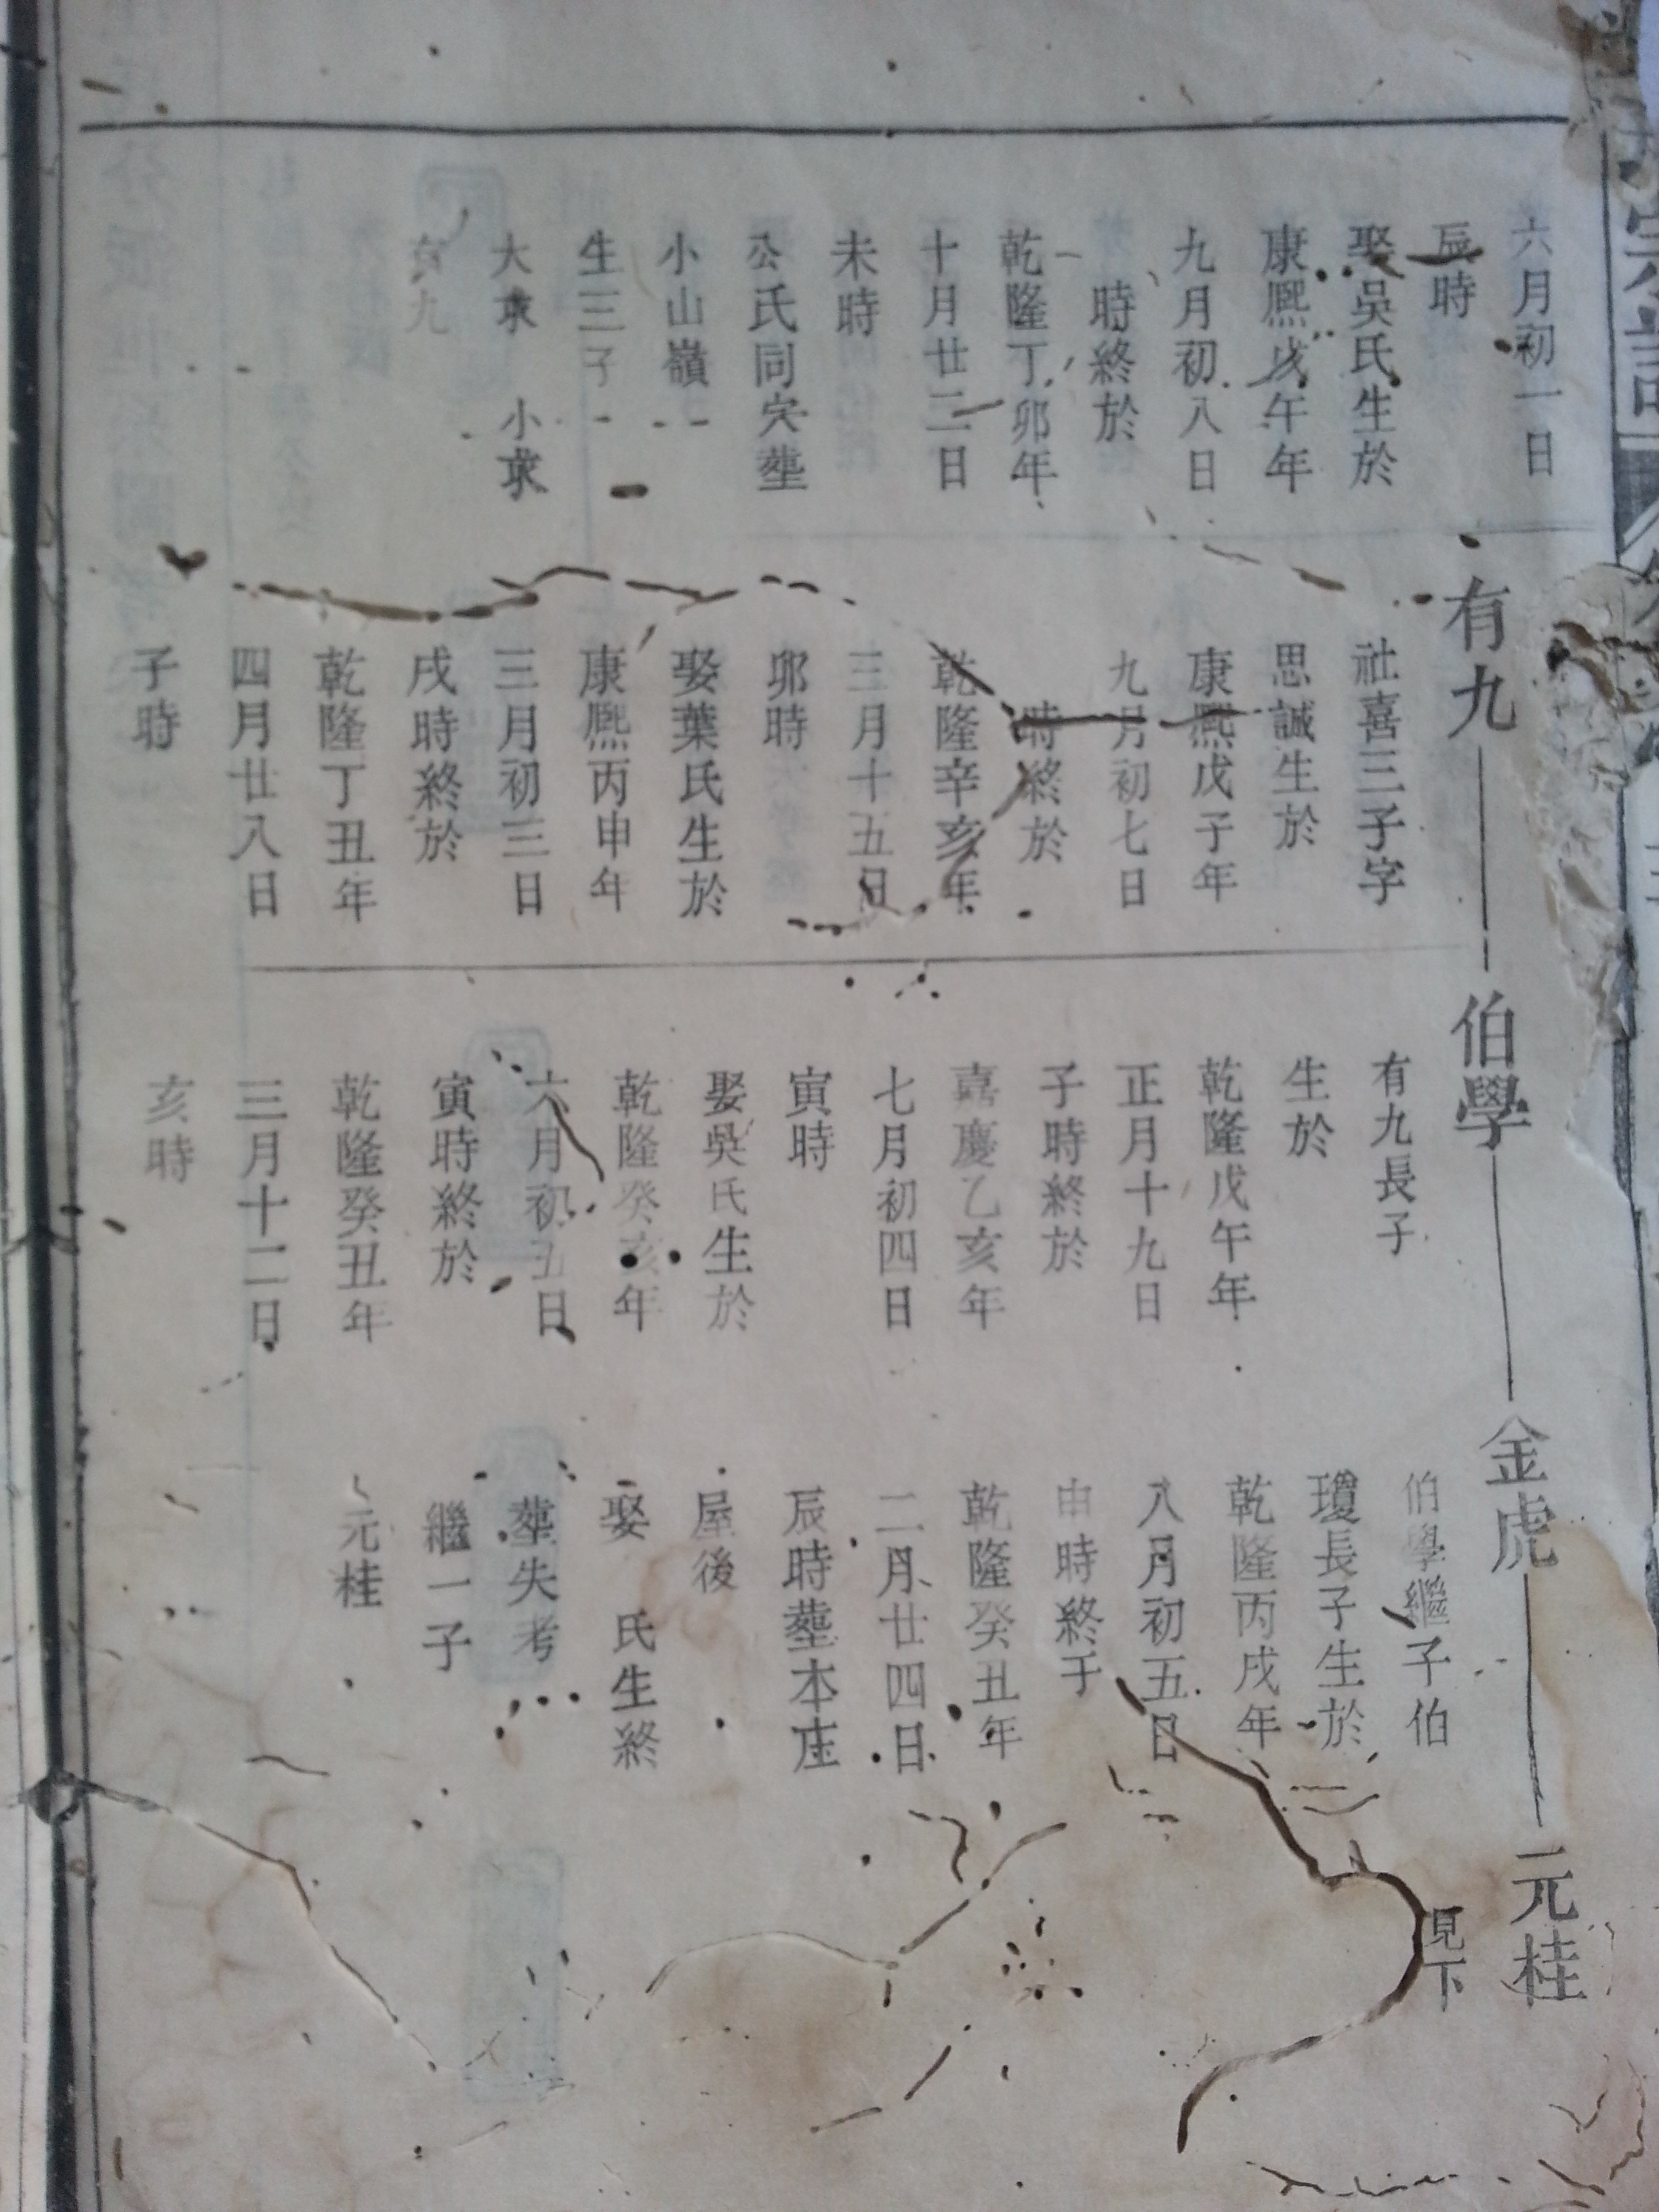 六月初一日
辰時
娶吳氏生於
康熙戊午年
九月初八日
時終於
乾隆丁卯年
十月廿二日
未時
公氏同穴塟
小山嶺
生三子
大求 小求
有九
有九
社喜三子字
思誠生於
康熙戊子年
九月初七日
時終於
乾隆辛亥年
三月十五日
卯時
娶葉氏生於
康熙丙申年
三月初三日
戌時終於
乾隆丁丑年
四月廿八日
子時
伯學
有九長子
生於
乾隆戊午年
正月十九日
子時終於
嘉慶乙亥年
七月初四日
寅時
娶吳氏生於
乾隆癸亥年
六月初五日
寅時終於
乾隆癸丑年
三月十二日
亥時
金虎
伯學繼子伯
瓊長子生於
乾隆丙戌年
八月初五日
申時終于
乾隆癸丑年
二月廿四日
辰時塟本庄
屋後
娶 氏生終
塟失考
繼一子
元桂
元桂
見下